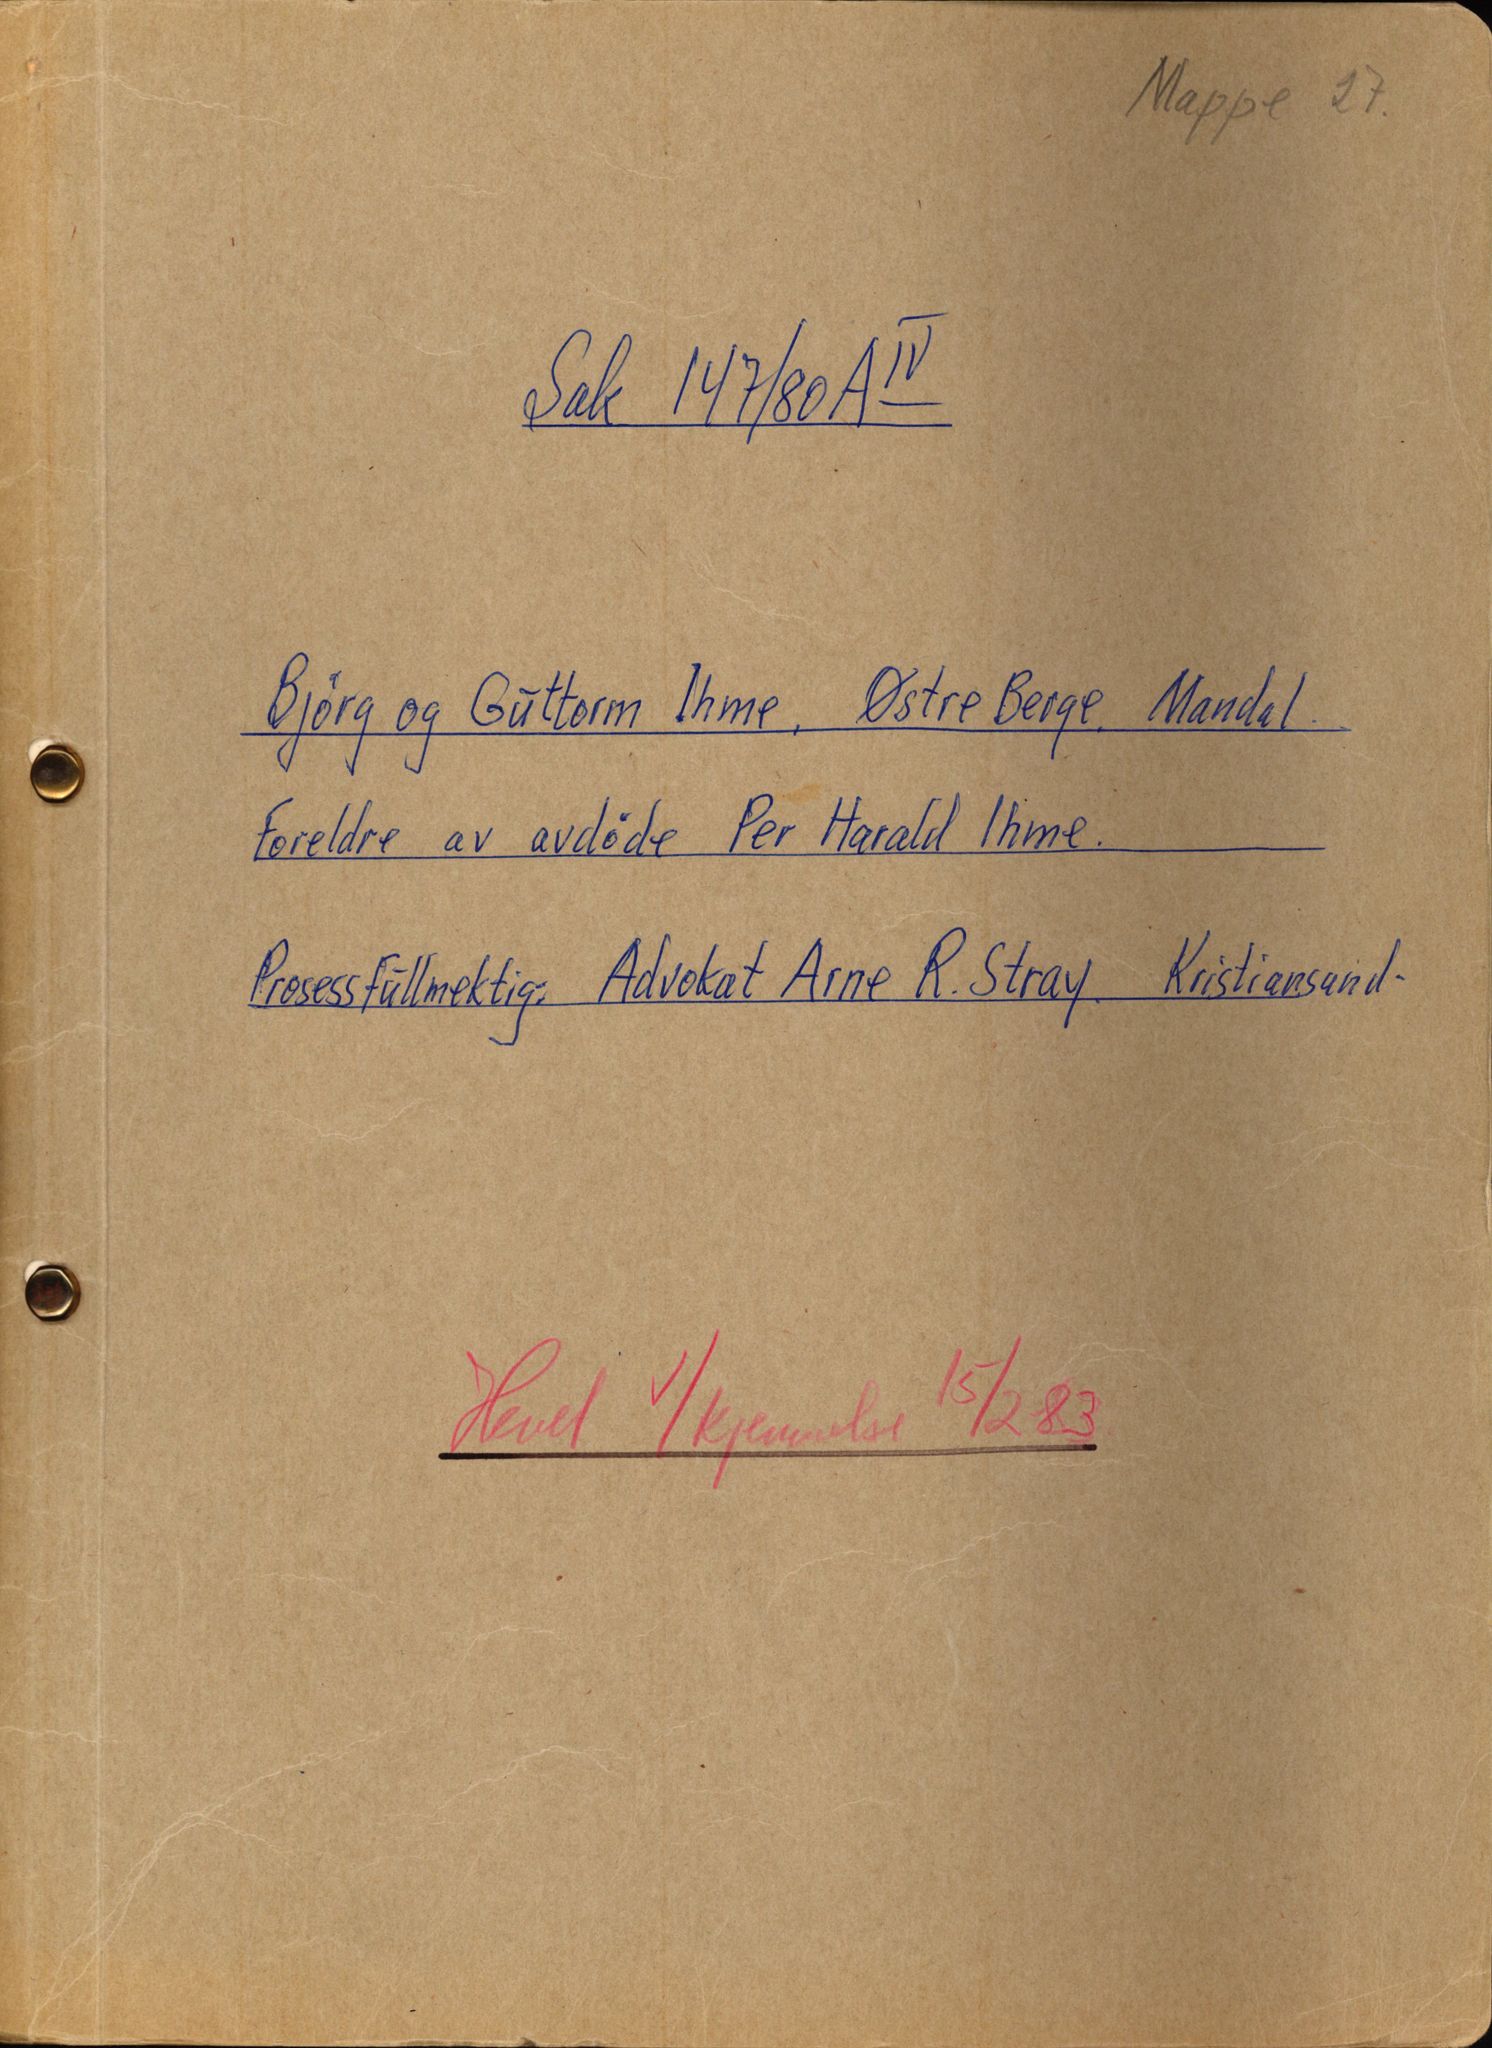 Mappe 27.
Sak 147/80 A IV
Björg og Guttorm Ihme, Østre Berge, Mandal.
Foreldre av avdöde Per Harald Ihme.
Prosessfullmektig: Advokat Arne R. Stray. Kristiansand-
Hevet v/kjennelse 15/2 83.